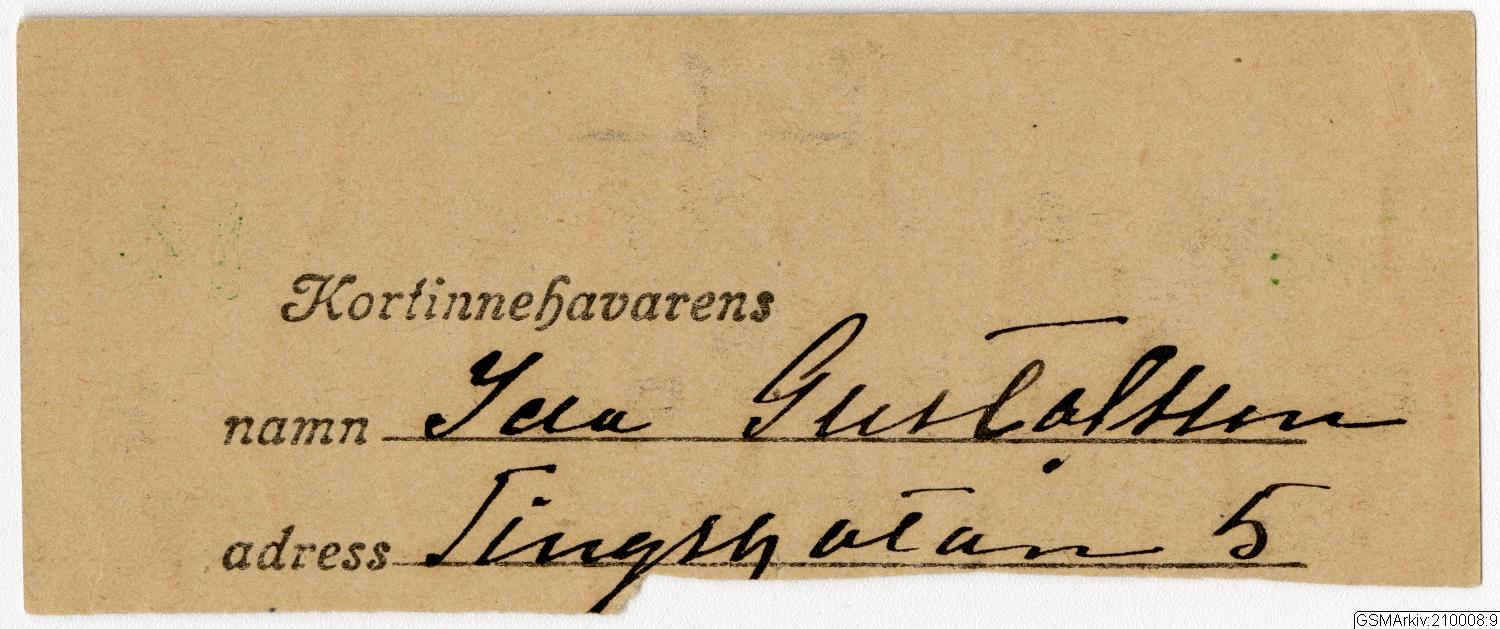 Kortinnehavarens
namn Ida Gustafsson
adress Tingsgatan 5
GSMArkiv:210008:9